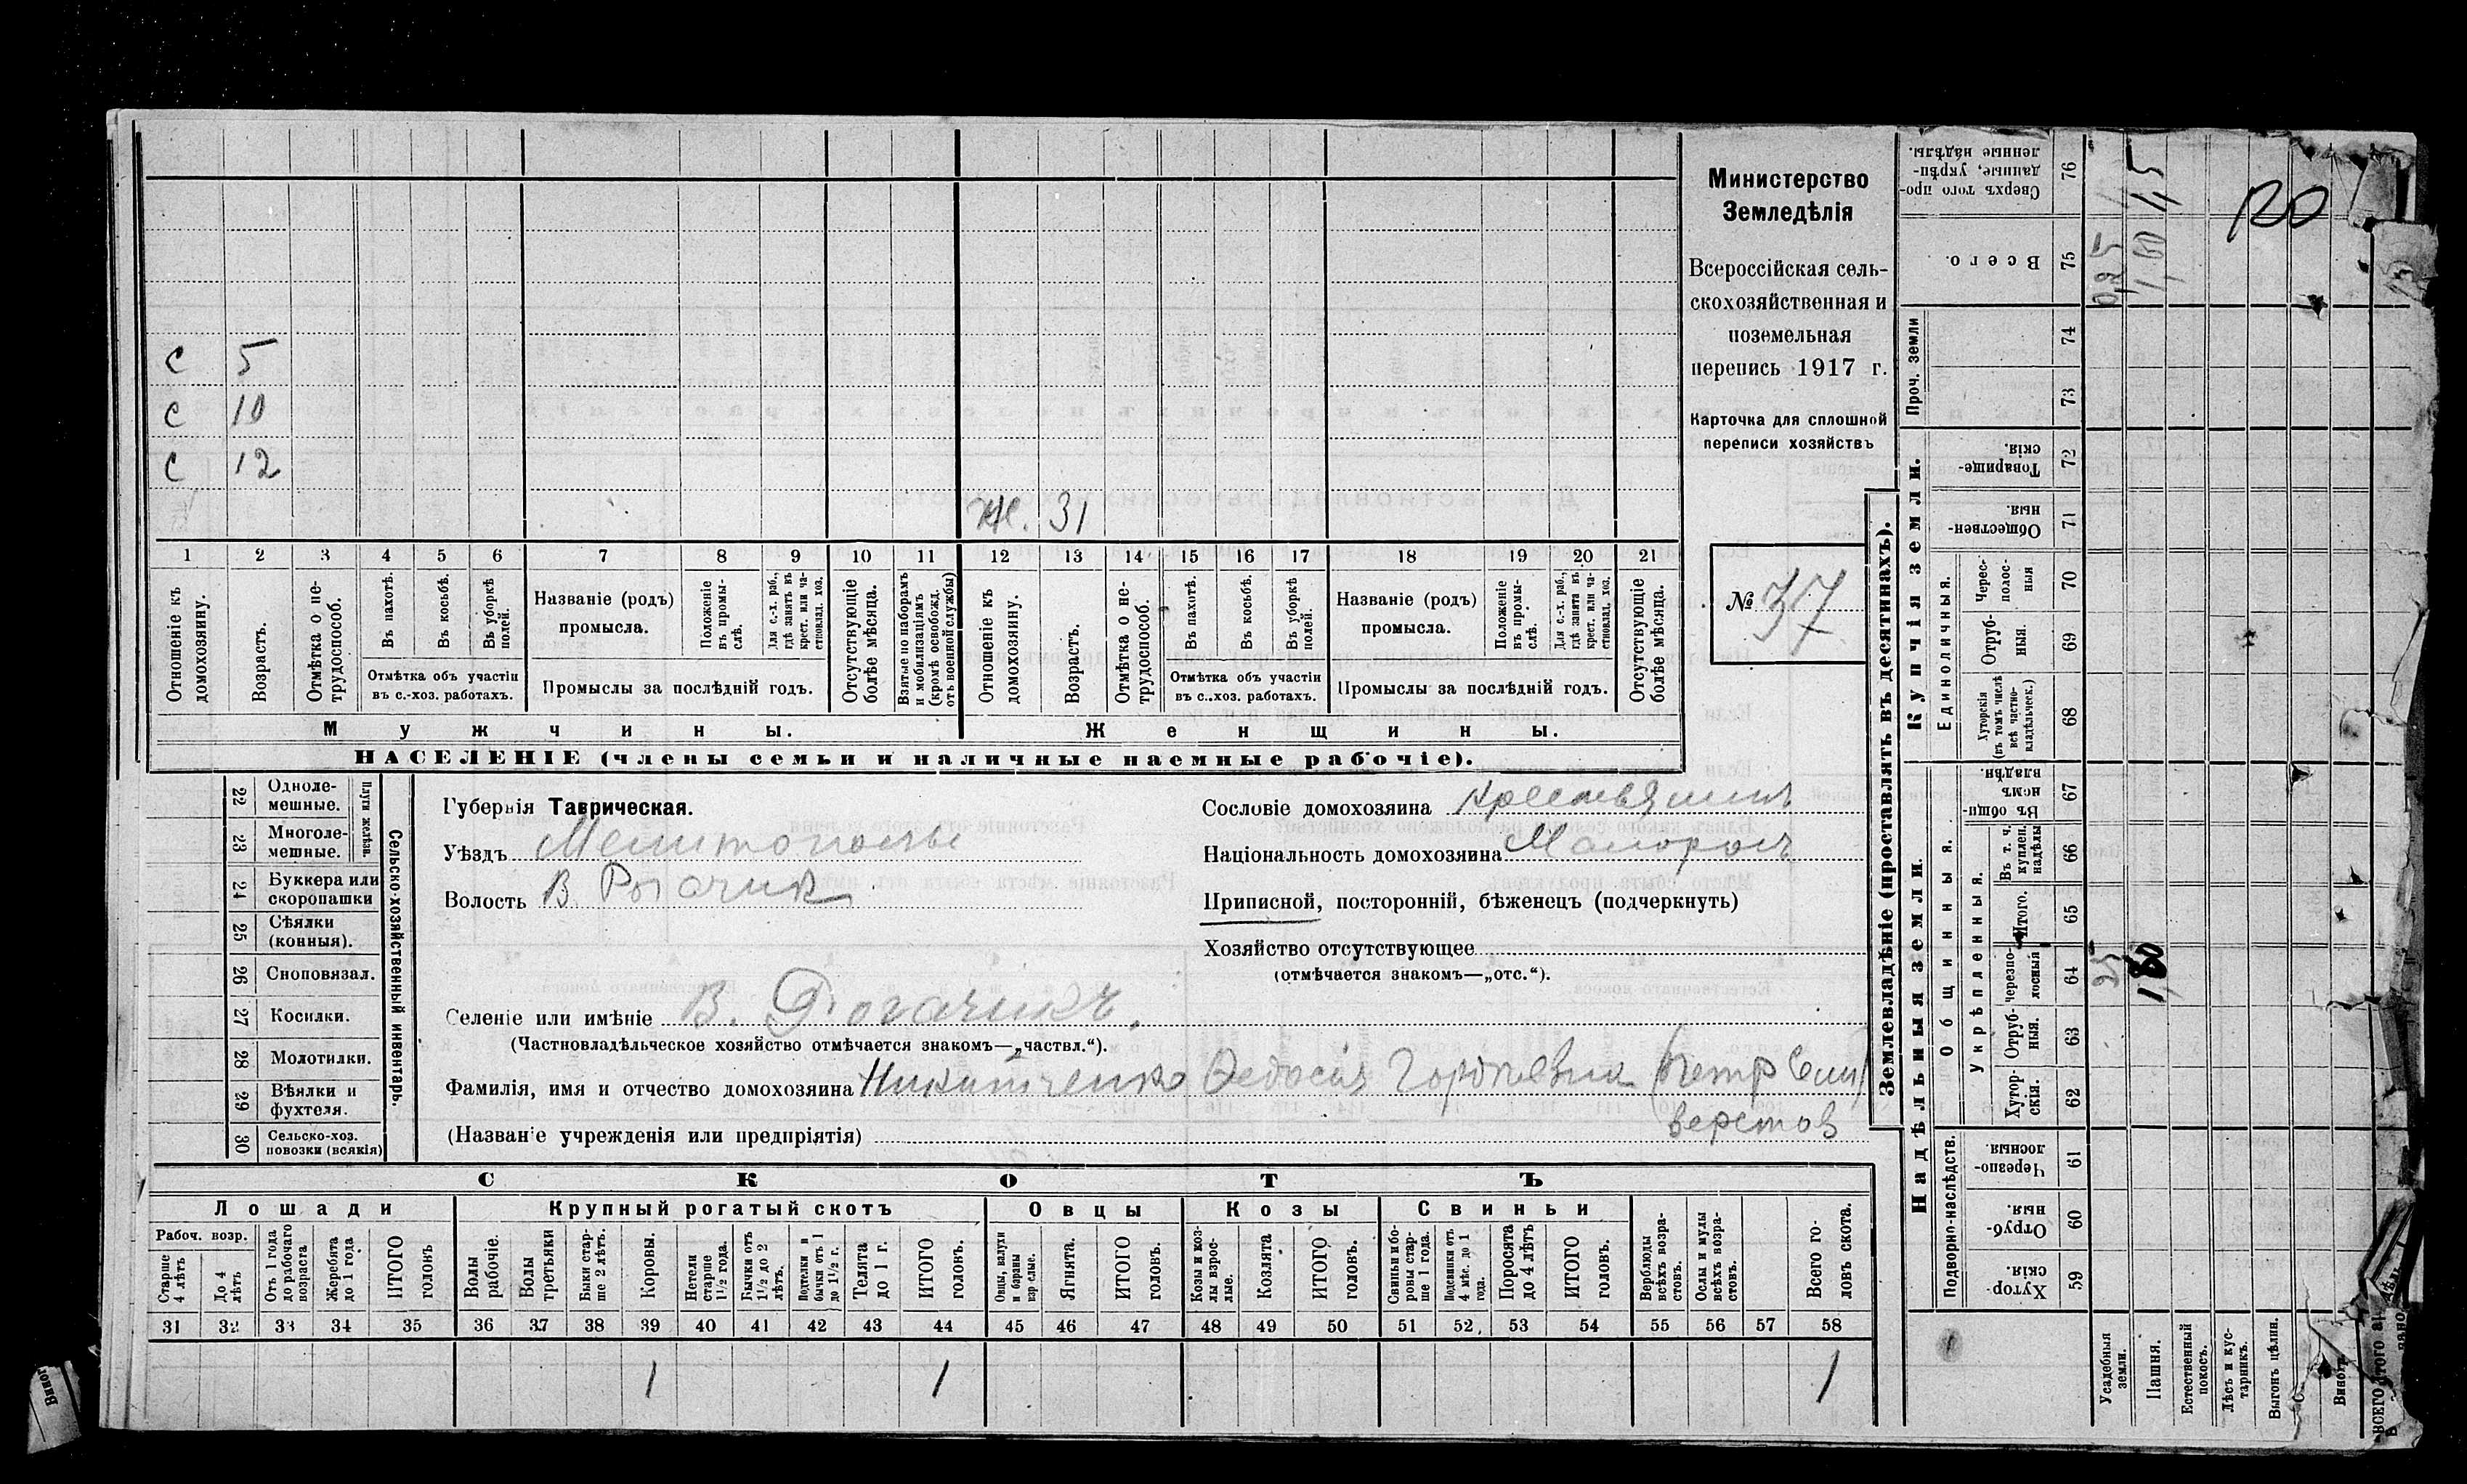 с 5
с 10
с 12
ж. 31
1 2 3 4 5 6 7 8 9 10 11 12 13 14 15 16 17 18 19 20 21
Отношеніе къ домохозяину.
Возрастъ.
Отмѣтка о не-
трудоспособ.
Въ пахотѣ.
Въ косьбѣ.
Въ уборкѣ
полей.
Отмѣтка объ участіи
въ с.-хоз. работахъ.
Названіе (родъ)
промысла.
Положеніе
въ промы-
слѣ.
Для с.-х. раб.,
гдѣ занятъ въ
крест. или ча-
стновлад. хоз.
Промыслы за послѣдній годъ.
Отсутствующіе
болѣе мѣсяца.
Взятые по наборамъ
и мобилизаціямъ
(кромѣ освобожд.
отъ военной службы)
Отношеніе къ
домохозяину.
Возрастъ.
Отмѣтка о не-
трудоспособ.
Въ пахотѣ.
Въ косьбѣ.
Въ уборкѣ
полей.
Отмѣтка объ участіи
въ с.-хоз. работахъ.
Названіе (родъ)
промысла.
Положеніе
въ промы-
слѣ.
Для с.-х. раб.,
гдѣ занята въ
крест. или ча-
стновлад. хоз.
Промыслы за послѣдній годъ.
Отсутствующіе
болѣе мѣсяца.
Мужчины.
Женщины.
НАСЕЛЕНІЕ (члены семьи и наличные наемные рабочіе).
Министерство
Земледѣлія
Всероссійская сель-
скохозяйственная и
поземельная
перепись 1917 г.
Карточка для сплошной
переписи хозяйствъ
№ 37
22 Однолемешные.
23 Многолемешные.
Плуги желѣзн.
24 Буккера или
скоропашки
25 Сѣялки
(конныя).
26 Сноповязал.
27 Косилки.
28 Молотилки.
29 Вѣялки и
фухтеля.
30 Сельско-хоз.
повозки (всякія)
Сельско-хозяйственный инвентарь.
Губернія Таврическая.
Уѣздъ
Волость В. Рогачик
Сословіе домохозяина Крестьянинъ
Національность домохозяина Малоросъ
Приписной, посторонній, бѣженецъ (подчеркнуть)
Хозяйство отсутствующее
(отмѣчается знакомъ—„отс.“).
Селеніе или имѣніе В. Рогачикъ.
(Частновладѣльческое хозяйство отмѣчается знакомъ—„частвл.“).
Фамилія, имя и отчество домохозяина Никитченко Федосія
(Названіе учрежденія или предпріятія)
СКОТЪ
Лошади
Крупный рогатый скотъ
Овцы
Козы
Свиньи
Рабоч. возр.
Старше
4 лѣтъ
До 4
лѣтъ
Отъ 1 года
до рабочаго
возраста
Жеребята
до 1 года
ИТОГО
головъ
Волы
рабочіе.
Волы
третьяки
Быки стар-
ше 2 лѣтъ.
Коровы.
Нетели
старше
1½ года.
Бычки отъ
1½ до 2
лѣтъ.
Подтелки и
бычки отъ 1
до 1½ г.
Телята
до 1 г.
ИТОГО
головъ.
Овцы, валухи
и бараны
взрослые.
Ягнята.
ИТОГО
головъ.
Козы и коз-
лы взрос-
лые.
Козлята
ИТОГО
головъ.
Свиньи и бо-
ровы стар-
ше 1 года.
Подсвинки отъ
4 мѣс. до 1
года.
Поросята
до 4 лѣтъ
ИТОГО
головъ.
Верблюды
всѣхъ возра-
стовъ.
Ослы и мулы
всѣхъ возра-
стовъ.
Всего го-
ловъ скота.
31 32 33 34 35 36 37 38 39 40 41 42 43 44 45 46 47 48 49 50 51 52 53 54 55 56 57 58
1 1 1
Землевладѣніе (проставлять въ десятинахъ).
Купчія земли.
Надѣльныя земли.
Проч. земли
Единоличныя.
Общинныя.
Укрѣпленныя.
Подворно-наслѣдств.
Сверхъ того про-
данные, укрѣп-
ленные надѣлы. 76
Всего. 75
74
73
Товарище-
скія. 72
Обществен-
ныя 71
Черес-
полос-
ныя 70
Отруб-
ныя. 69
Хуторскія
(въ томъ числѣ
всѣ частно-
владѣльческ.) 68
Въ общин-
номъ
владѣн. 67
Въ т. ч.
куплен.
надѣлы 66
Итого. 65
Черезпо-
лосныя 64
Отруб-
ныя. 63
Хутор-
скія. 62
Черезпо-
лосныя 61
Отруб-
ныя. 60
Хутор-
скія. 59
Усадебныя
земли.
Пашня.
Естественный
покосъ.
Лѣсъ и кус-
тарникъ.
Выгонъ цѣлин.
0,25
1,80
25
1,80